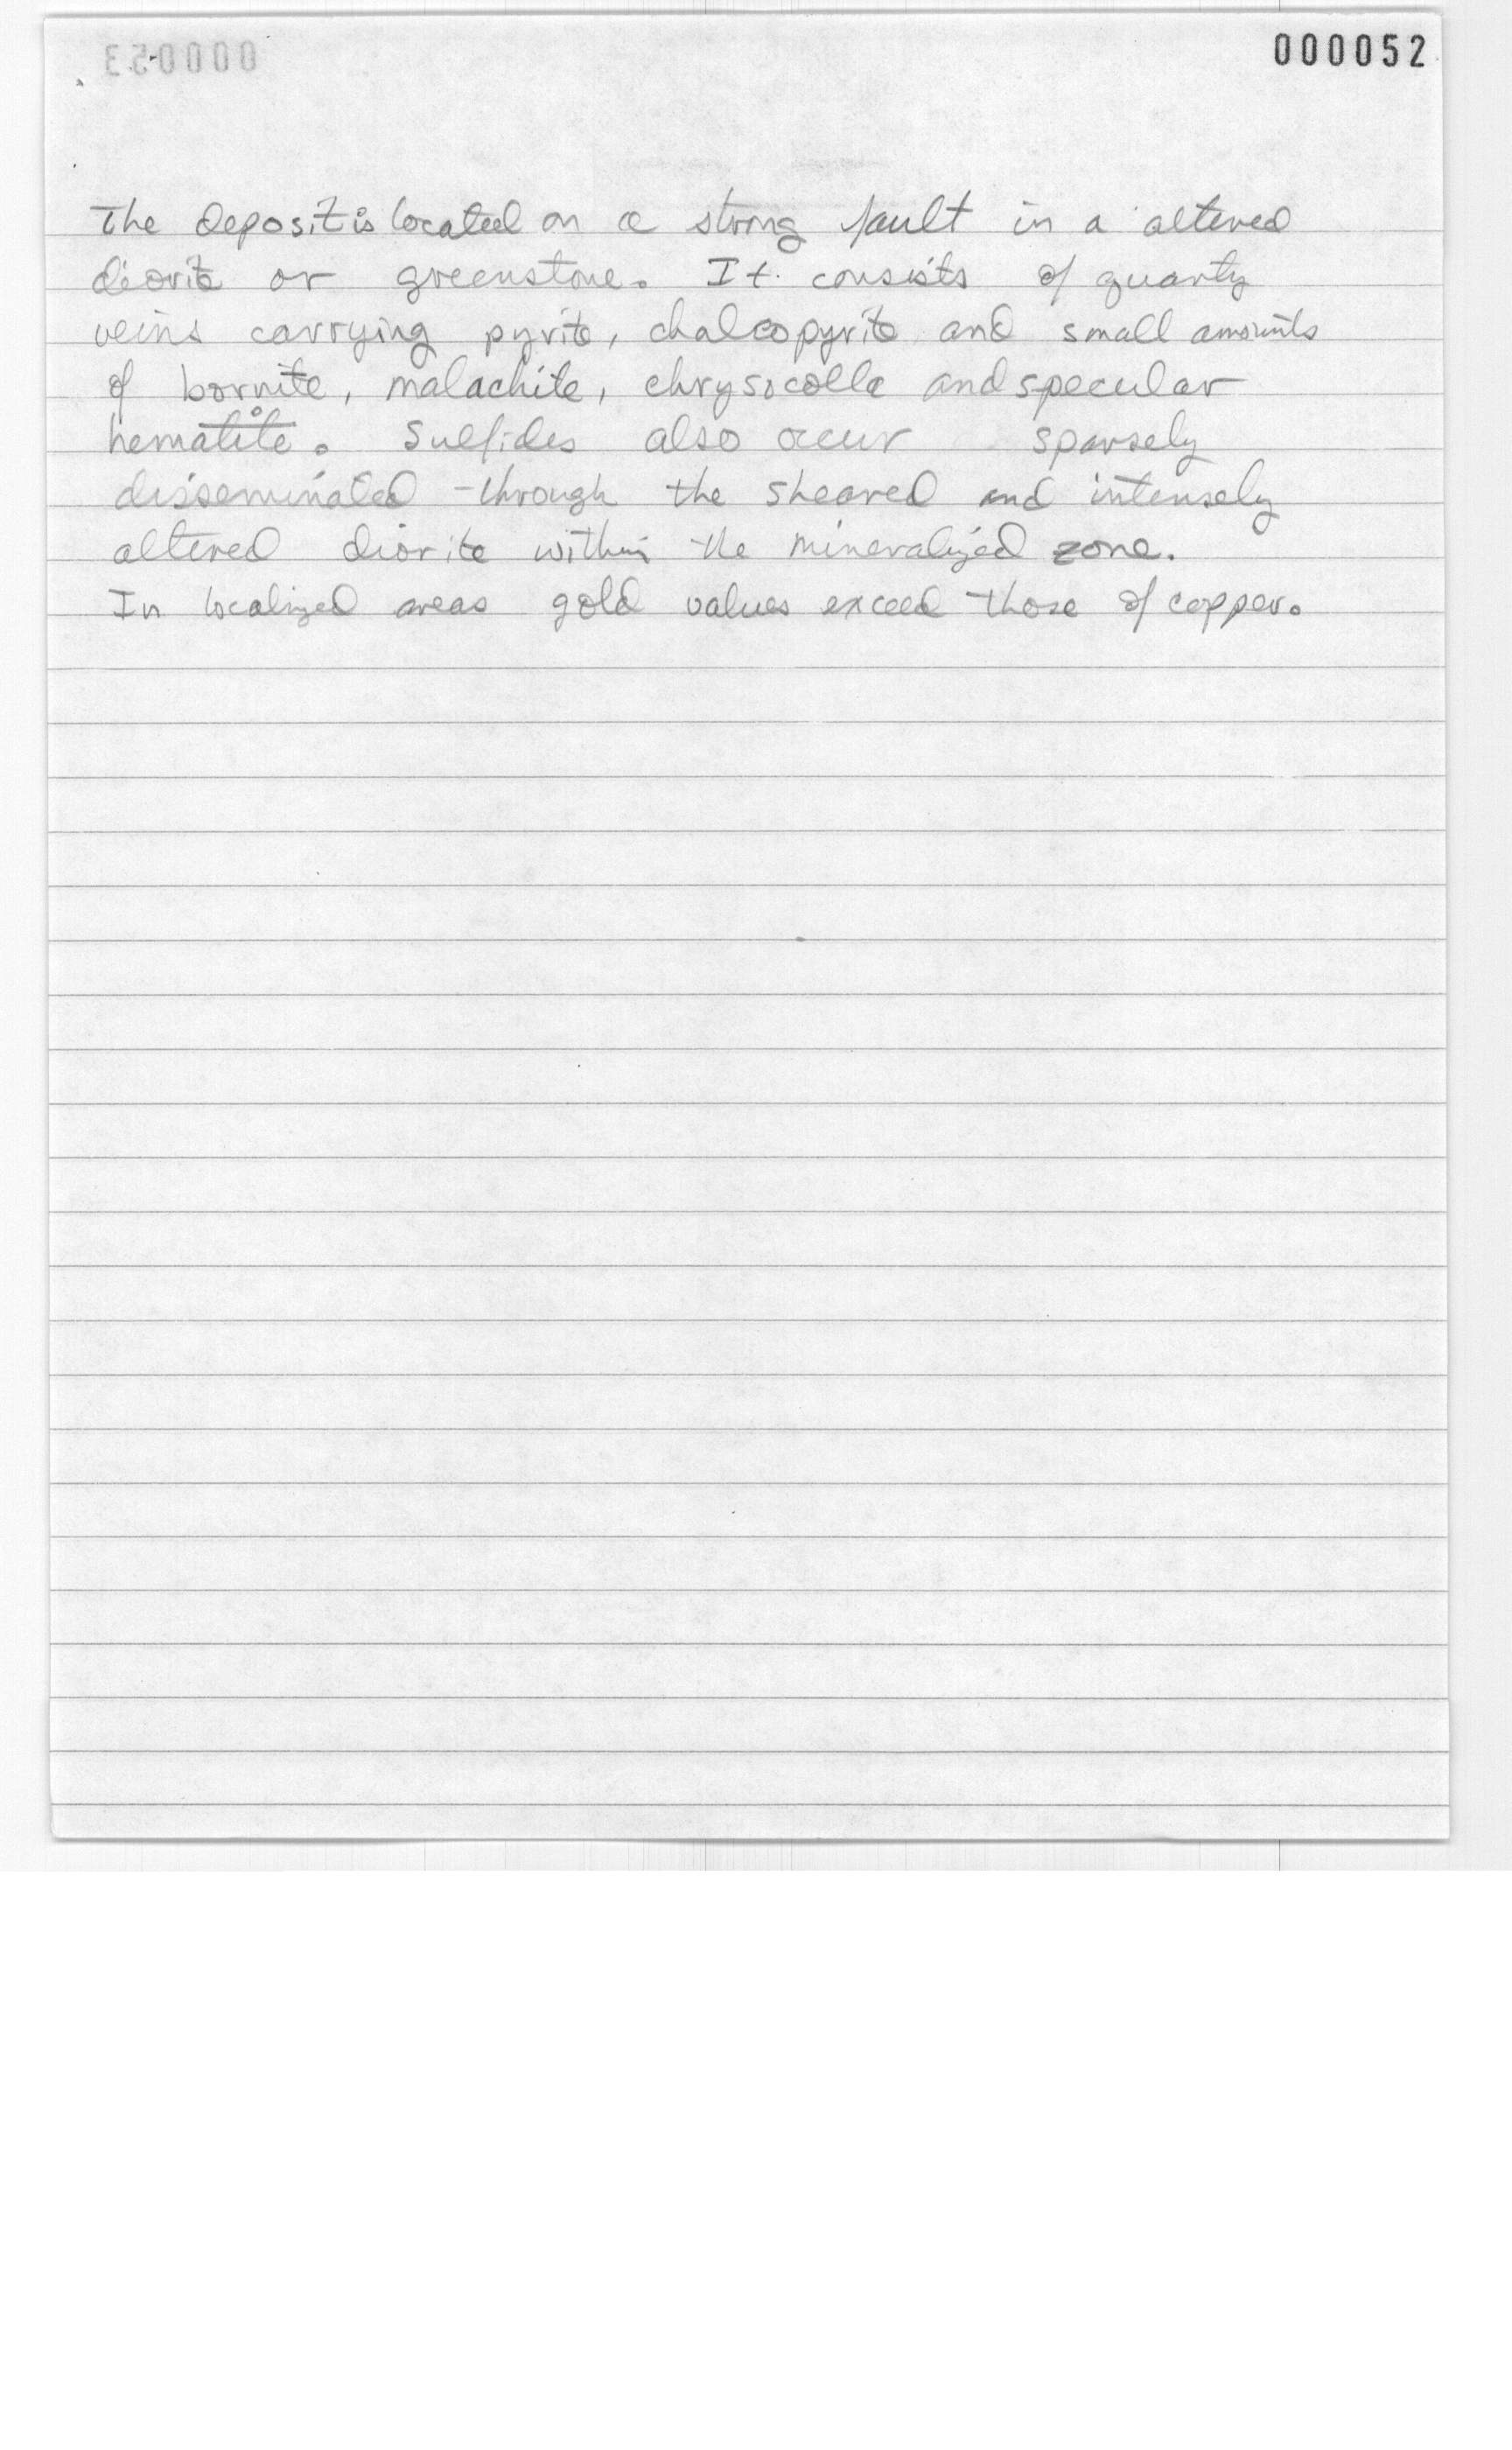 000053
000052
The deposit is located on a strong fault in a altered
diorite or greenstone. It consists of quartz
veins carrying pyrite, chalcopyrite and small amounts
of bornite, malachite, chrysocolla and specular
hematite. Sulfides also occur sparsely
disseminated through the sheared and intensely
altered diorite within the mineralized zone.
In localized areas gold values exceed those of copper.